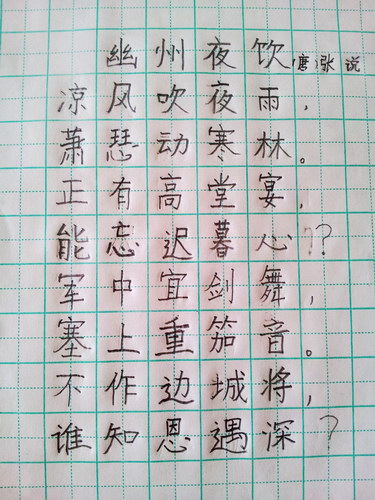 幽州夜饮 唐 张说
凉风吹夜雨，
萧瑟动寒林。
正有高堂宴，
能忘迟暮心？?
军中宜剑舞，
塞上重笳音。
不作边城将，
谁知恩遇深？